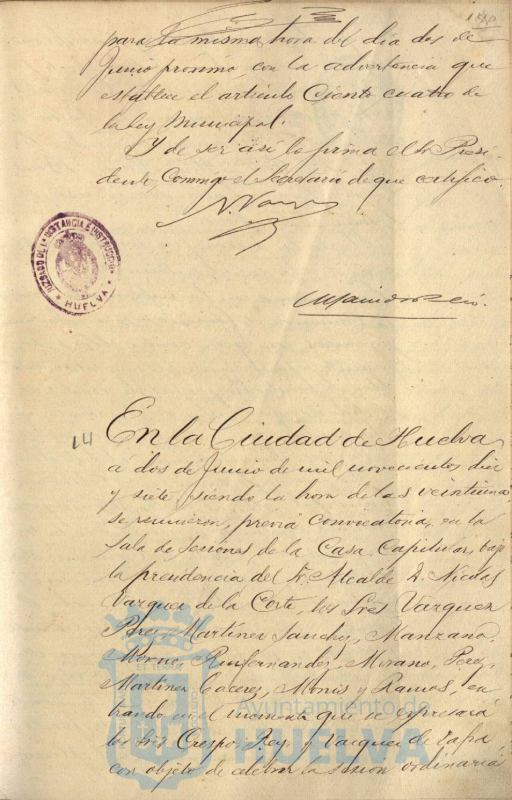 150
para la misma hora del dia dos de
Junio proximo, con la advertencia que
establece el articulo Ciento cuatro de
la ley Municipal.
Y de ser asi lo firma el Sr Presi-
dente, Conmigo el Secretario de que certifico.
JUZGADO DE 1ª INSTANCIA E INSTRUCCION
* HUELVA *
14 En la Ciudad de Huelva
á dos de Junio de mil novecientos diez
y siete siendo la hora de las veintiuna
se reunieron, previa convocatoria, en la
Sala de sesiones de la Casa Capitular, bajo
la presidencia del Sr. Alcalde D. Nicolas
Vazquez de la Corte, los Sres Vazquez
Perez, Martinez Sanchez, Manzano,
Ruifernandez, Morano, Perez,
Martinez Cacerez, Monis y Ramos, en-
trando en el momento que se expresará
los Sres Crespo, Rey y Vazquez de Zafra
con objeto de celebrar la sesion ordinaria
Ayuntamiento de
HUELVA